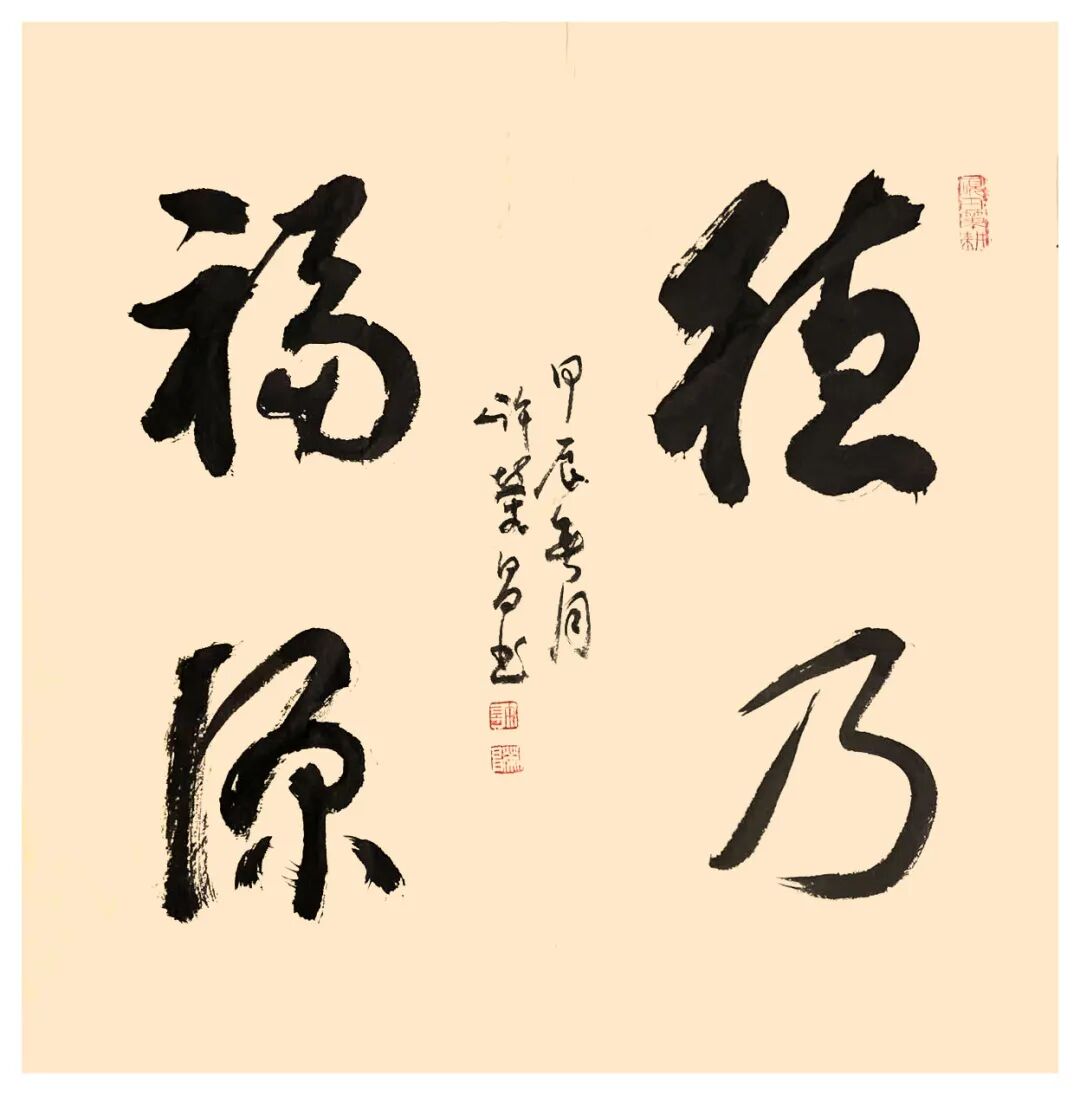 德乃
福源
甲辰春月
许荣昌书